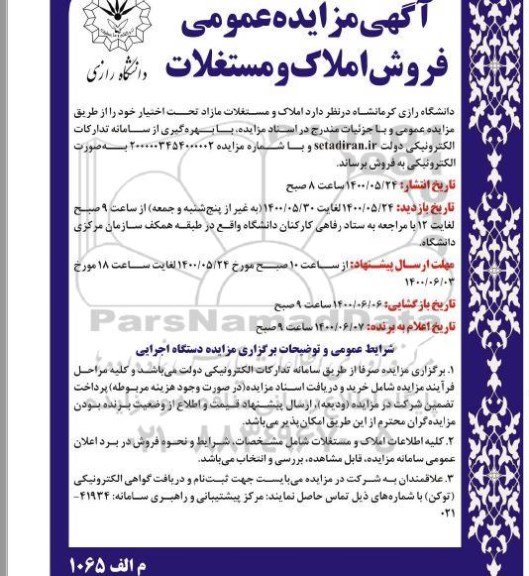 آگهی مزایده عمومی
فروش املاک و مستغلات
دانشگاه رازی
دانشگاه رازی کرمانشاه درنظر دارد املاک و مستغلات مازاد تحت اختیار خود را از طریق
مزایده عمومی و با جزئیات مندرج در اسناد مزایده، با بهره‌گیری از سامانه تدارکات
الکترونیکی دولت setadiran.ir و با شماره مزایده ۲۰۰۰۰۰۳۴۵۴۰۰۰۰۰۲ به‌صورت
الکترونیکی به فروش برساند.
تاریخ انتشار: ۱۴۰۰/۰۵/۲۴ ساعت ۸ صبح
تاریخ بازدید: ۱۴۰۰/۰۵/۲۴ لغایت ۱۴۰۰/۰۵/۳۰ (به غیر از پنج‌شنبه و جمعه) از ساعت ۹ صبح
لغایت ۱۲ با مراجعه به ستاد رفاهی کارکنان دانشگاه واقع در طبقه همکف سازمان مرکزی
دانشگاه.
مهلت ارسال پیشنهاد: از ساعت ۱۰ صبح مورخ ۱۴۰۰/۰۵/۲۴ لغایت ساعت ۱۸ مورخ
۱۴۰۰/۰۶/۰۳
تاریخ بازگشایی: ۱۴۰۰/۰۶/۰۶ ساعت ۹ صبح
تاریخ اعلام به برنده: ۱۴۰۰/۰۶/۰۷ ساعت ۹ صبح
شرایط عمومی و توضیحات برگزاری مزایده دستگاه اجرایی
۱. برگزاری مزایده صرفا از طریق سامانه تدارکات الکترونیکی دولت می‌باشد و کلیه مراحل
فرآیند مزایده شامل خرید و دریافت اسناد مزایده (در صورت وجود هزینه مربوطه) پرداخت
تضمین شرکت در مزایده (ودیعه)، ارسال پیشنهاد قیمت و اطلاع از وضعیت برنده بودن
مزایده‌گران محترم از این طریق امکان‌پذیر می‌باشد.
۲. کلیه اطلاعات املاک و مستغلات شامل مشخصات، شرایط و نحوه فروش در برد اعلان
عمومی سامانه مزایده، قابل مشاهده، بررسی و انتخاب می‌باشد.
۳. علاقمندان به شرکت در مزایده می‌بایست جهت ثبت‌نام و دریافت گواهی الکترونیکی
(توکن) با شماره‌های ذیل تماس حاصل نمایند: مرکز پشتیبانی و راهبری سامانه: ۴۱۹۳۴-
۰۲۱
م الف ۱۰۶۵
ParsNamadData